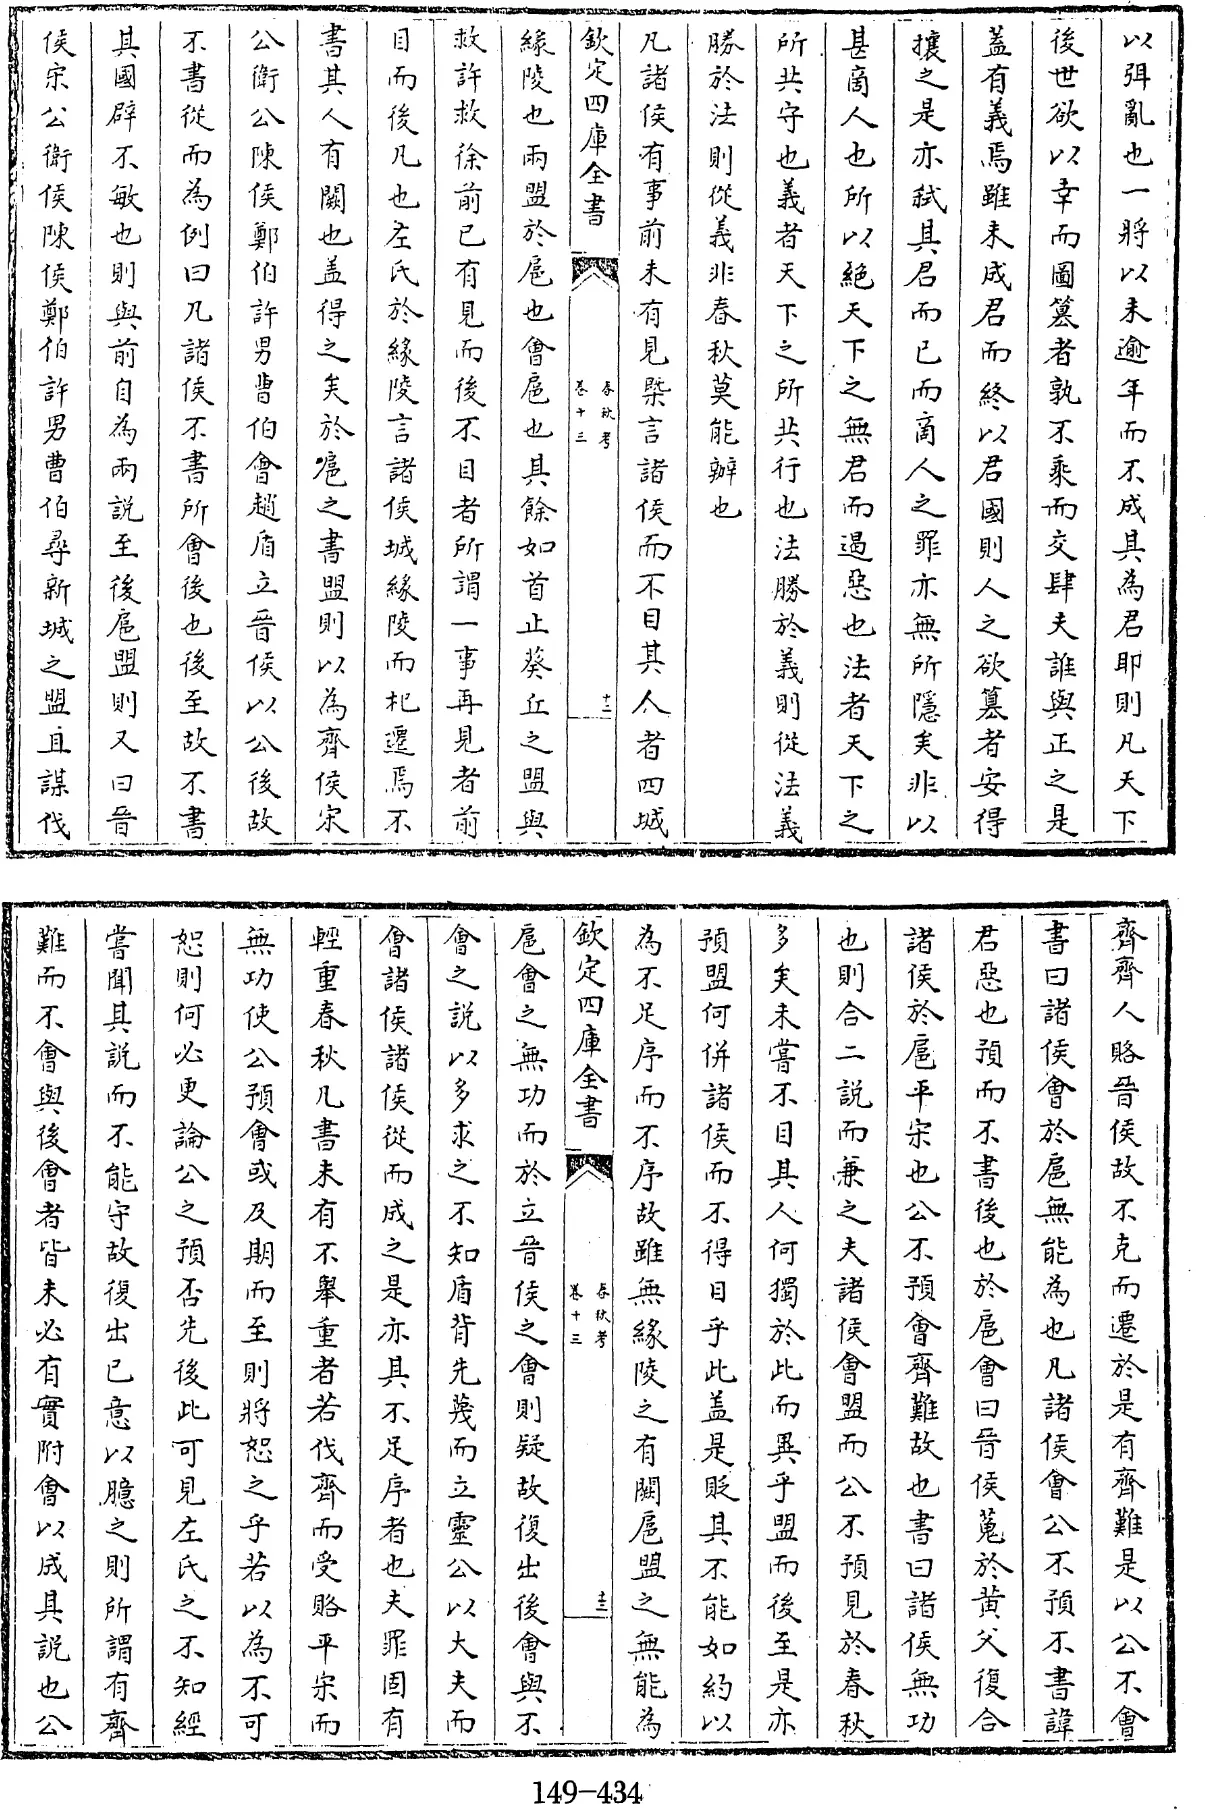 以弭亂也一將以未逾年而不成其為君耶則凡天下
後世欲以幸而圖簒者孰不乘而交肆夫誰與正之是
蓋有義焉雖未成君而終以君國則人之欲簒者安得
攘之是亦弒其君而已而商人之罪亦無所隱矣非以
甚商人也所以絶天下之無君而遏惡也法者天下之
所共守也義者天下之所共行也法勝於義則從法義
勝於法則從義非春秋莫能辨也
凡諸侯有事前未有見槩言諸侯而不目其人者四城
欽定四庫全書
春秋考
卷十三
十二
緣陵也兩盟於扈也會扈也其餘如首止葵丘之盟與
救許救徐前已有見而後不目者所謂一事再見者前
目而後凡也左氏於緣陵言諸侯城緣陵而杞遷焉不
書其人有闕也盖得之矣於扈之書盟則以為齊侯宋
公衛公陳侯鄭伯許男曹伯會趙盾立晉侯以公後故
不書從而為例曰凡諸侯不書所會後也後至故不書
其國辟不敏也則與前自為兩說至後扈盟則又曰晉
侯宋公衛侯陳侯鄭伯許男曹伯尋新城之盟且謀伐
齊齊人賂晉侯故不克而還於是有齊難是以公不會
書曰諸侯會於扈無能為也凡諸侯會公不預不書諱
君惡也預而不書後也於扈會曰晉侯蒐於黄父復合
諸侯於扈平宋也公不預會齊難故也書曰諸侯無功
也則合二說而兼之夫諸侯會盟而公不預見於春秋
多矣未嘗不目其人何獨於此而異乎盟而後至是亦
預盟何併諸侯而不得目乎此盖是貶其不能如約以
為不足序而不序故雖無緣陵之有闕扈盟之無能為
欽定四庫全書
春秋考
卷十三
十三
扈會之無功而於立晉侯之會則疑故復出後會與不
會之說以多求之不知盾背先蔑而立靈公以大夫而
會諸侯諸侯從而成之是亦其不足序者也夫罪固有
輕重春秋凡書未有不舉重者若伐齊而受賂平宋而
無功使公預會或及期而至則將恕之乎若以為不可
恕則何必更論公之預否先後此可見左氏之不知經
嘗聞其說而不能守故復出已意以臆之則所謂有齊
難而不會與後會者皆未必有實附會以成其說也公
149-434